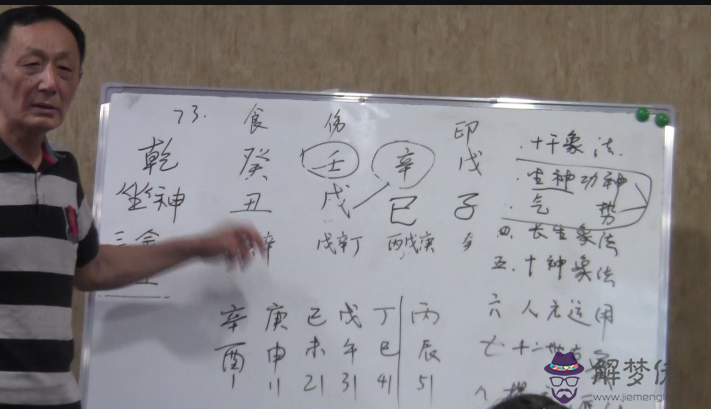 73. 食 伤 印
乾 癸 壬 辛 戊
坐神 丑 戌 巳 子
辛 戊辛丁 丙戊庚
辛 庚 己 戊 丁 丙
酉 申 未 午 巳 辰
1 11 21 31 41 51
·十干象法
·坐神功神
·气 势
四.长生象法
五.十神象法
六 人元运用
七 十二
解梦
www.jiemeng